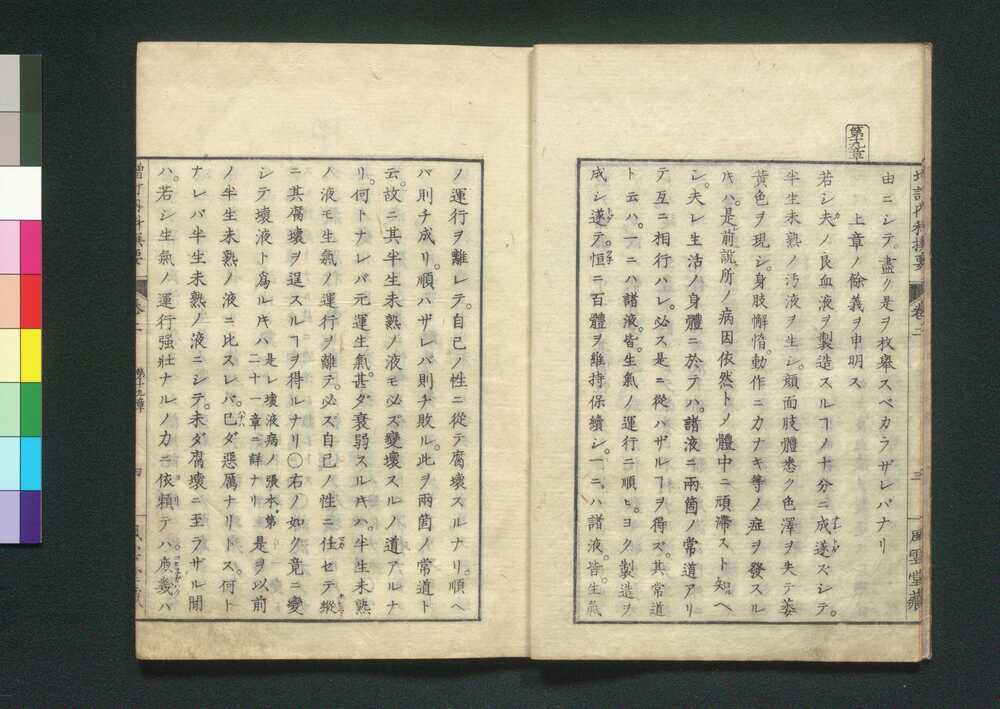 第十九章
由ニシテ。盡ク是ヲ枚舉スベカラザレバナリ
上章ノ餘義ヲ申明ス
若シ夫ノ良血液ヲ製造スルヿノ十分ニ成遂ズシテ。
半生未熟ノ汚液ヲ生シ。顔面肢體悉ク色澤ヲ失テ萎
黄色ヲ現シ。身肢懈惰。動作ニカナキ等ノ症ヲ發スル
𪜈ハ。是前説所ノ病因依然トノ體中ニ頑滯スト知ヘ
シ。夫レ生活ノ身體ニ於テハ。諸液ニ兩箇ノ常道アリ
テ互ニ相行ハレ。必ス是ニ從ハザルヿヲ得ズ。其常道
ト云ハ。一ニハ諸液。皆生氣ノ運行ニ順ヒ。ヨク製造ヲ
成シ遂テ。恒ニ百體ヲ維持保續シ。一ニハ諸液。皆生氣
卷二
三
風雲堂藏
ノ運行ヲ離レテ。自己ノ性ニ從テ腐壞スルナリ。順ヘ
バ則チ成リ。順ハザレバ則チ敗ル。此ヲ兩箇ノ常道ト
云。故ニ其半生未熟ノ液モ必ズ變壞スルノ道アルナ
リ。何トナレバ元運生氣。甚ダ衰弱スル𪜈ハ。半生未熟
ノ液モ生氣ノ運行ヲ離テ。必ズ自己ノ性ニ任セテ縱
ニ其腐壞ヲ逞スルヿヲ得ルナリ〇右ノ如ク竟ニ變
シテ壞液ト爲ル𪜈ハ是レ壞液病ノ張本。第二十一章ニ詳ナリ是ヲ以前
ノ半生未熟ノ液ニ比スレバ。已ダ惡厲ナリトス。何ト
ナレバ半生未熟ノ液ニシテ。未ダ腐壞ニ至ラザル間
ハ。若シ生氣ノ運行強壯ナルノ力ニ依頼テハ。庶幾バ
第十九章
四